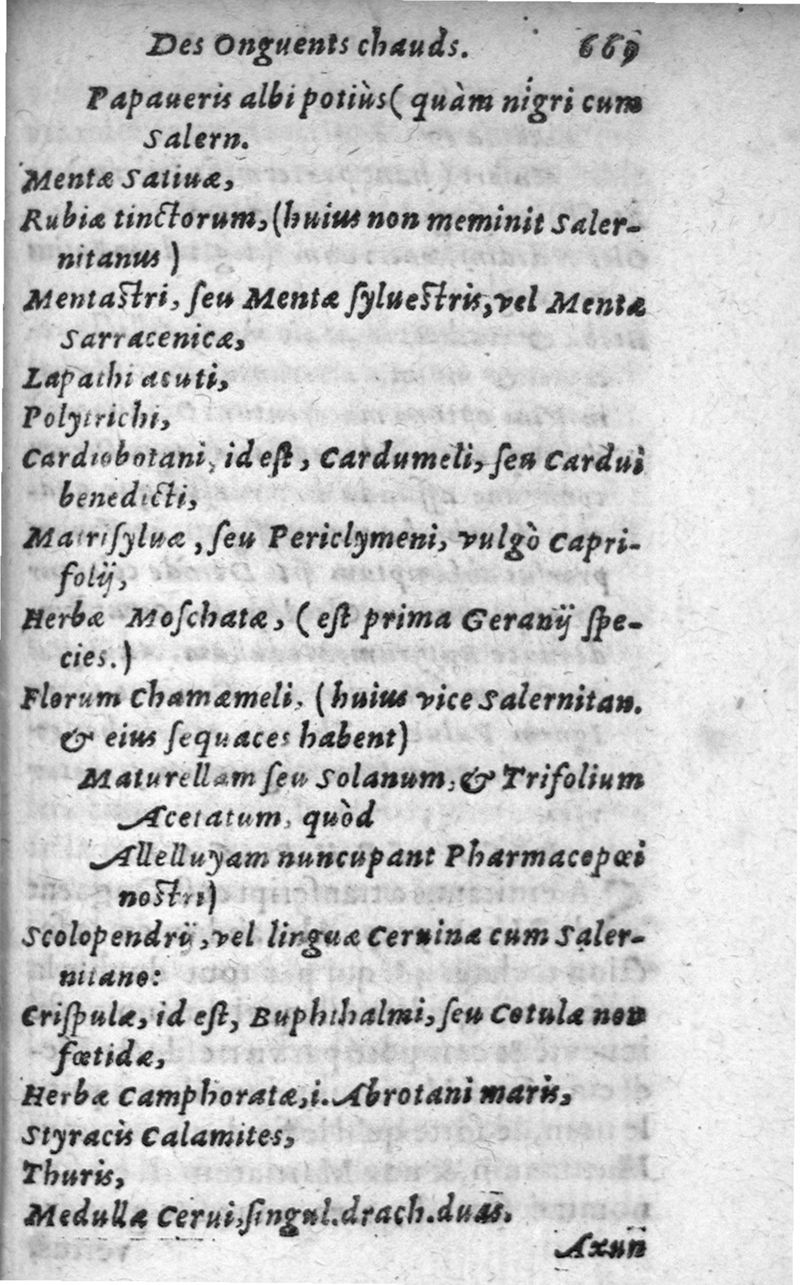 Des Onguents chauds. 669
Papaueris albi potiùs ( quàm nigri cum
Salern.
Mentæ Satiuæ,
Rubiæ tinctorum, (huius non meminit Saler-
nitanus )
Mentaſtri, ſeu Mentæ ſylueſtris, vel Mentæ
Sarracenicæ,
Lapathi acuti,
Polytrichi,
Cardiobotani, id eſt, Cardumeli, ſeu Cardui
benedicti,
Matriſyluæ, ſeu Periclymeni, vulgò Capri-
folij,
Herbæ Moſchatæ, ( eſt prima Geranij ſpe-
cies.)
Florum Chamæmeli, (huius vice Salernitan.
& eius ſequaces habent)
Maturellam ſeu Solanum, & Trifolium
Acetatum, quòd
Allelluyam nuncupant Pharmacopœi
noſtri)
Scolopendrij, vel linguæ Ceruinæ cum Saler-
nitano:
Criſpulæ, id eſt, Buphthalmi, ſeu Cotulæ non
fœtidæ,
Herbæ Camphoratæ, i. Abrotani maris,
Styracis Calamites,
Thuris,
Medullæ Cerui, ſingul. drach. duas.
Axun